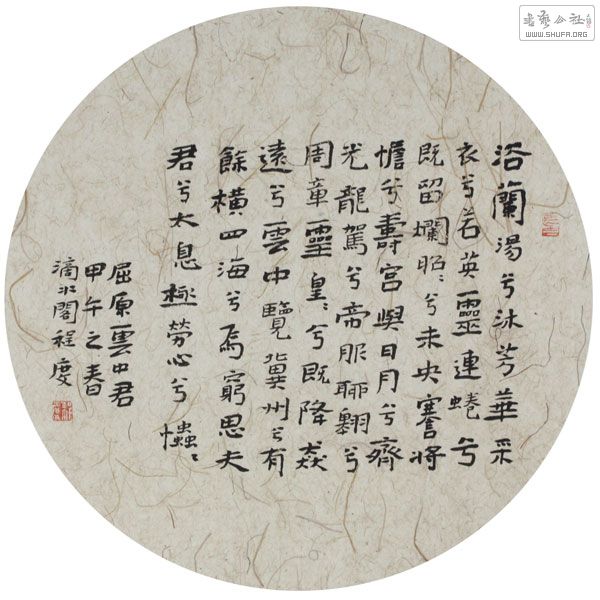 浴蘭湯兮沐芳華采
衣兮若英靈連蜷兮
既留爛昭〻兮未央謇將
憺兮壽宮與日月兮齊
光龍駕兮帝服聊翱兮
周章靈皇〻兮既降猋
遠兮雲中覽冀州兮有
餘橫四海兮焉窮思夫
君兮太息極勞心兮忡〻
屈原雲中君
甲午之春
滴水閣程度
書藝公社
WWW.SHUFA.ORG